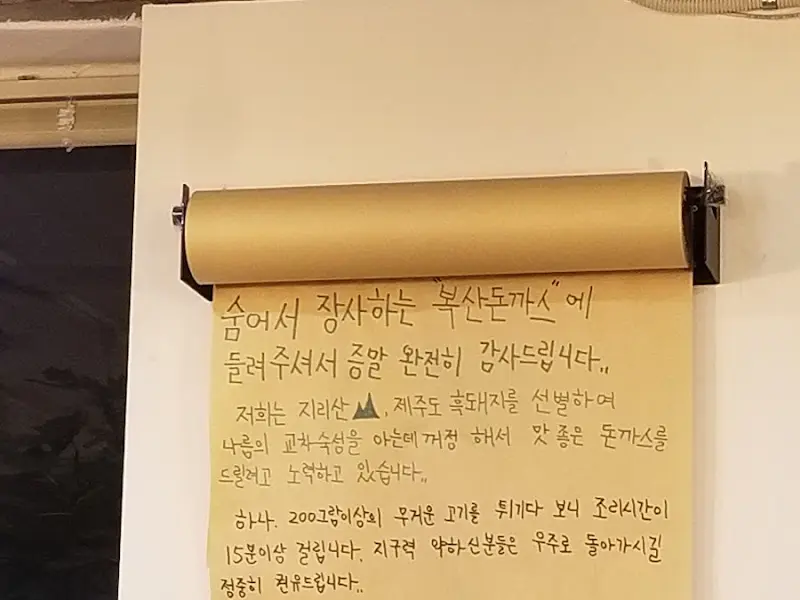 숨어서 장사하는 "복산돈까스"에
들려주셔서 증말 완전히 감사드립니다..
저희는 지리산, 제주도 흑돼지를 선별하여
나름의 교차숙성을 아는데꺼정 해서 맛 좋은 돈까스를
드릴려고 노력하고 있습니다..
하나. 200그람이상의 무거운 고기를 튀기다 보니 조리시간이
15분이상 걸립니다. 지구력 약하신분들은 우주로 돌아가시길
정중히 권유드립니다..